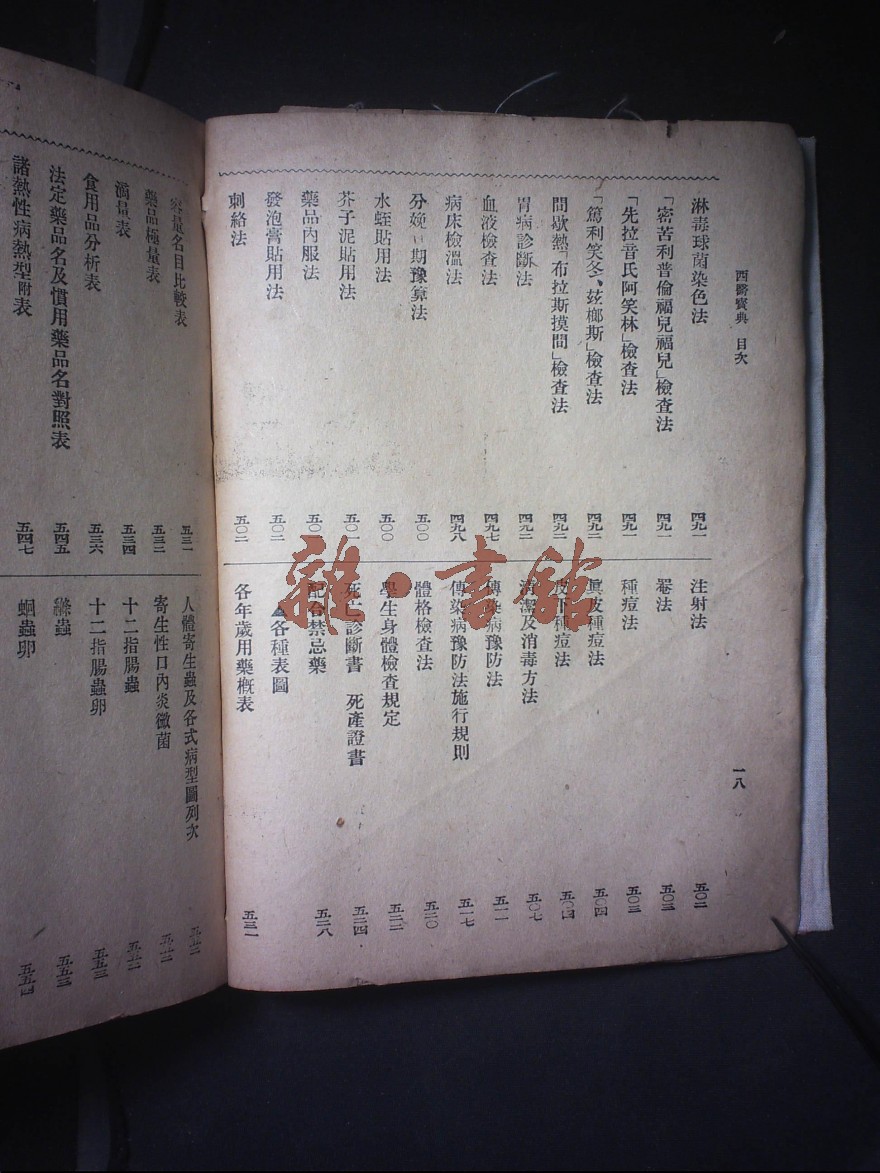 西醫寶典 目次
一八
淋毒球菌染色法 四九一
「密苦利普倫福兒福兒」檢查法 四九一
「先拉音氏阿笑林」檢查法 四九一
「篤利笑冬、玆榔斯」檢查法 四九二
間歇熱「布拉斯摸間」檢查法 四九二
胃病診斷法 四九二
血液檢查法 四九七
病床檢溫法 四九八
分娩日期豫算法 五〇〇
水蛭貼用法 五〇〇
芥子泥貼用法 五〇一
藥品內服法
發泡膏貼用法 五〇二
刺絡法 五〇二
注射法 五〇二
罨法 五〇三
種痘法 五〇三
眞皮種痘法 五〇四
皮下種痘法 五〇四
清潔及消毒方法 五〇七
傳染病豫防法 五一一
傳染病豫防法施行規則 五一七
體格檢查法 五二〇
學生身體檢查規定 五二二
死亡診斷書 死產證書 五二四
配合禁忌藥 五二八
各種表圖
各年歲用藥概表 五三一
容量名目比較表 五三一
藥品極量表 五三二
滴量表 五三四
食用品分析表 五三六
法定藥品名及慣用藥品名對照表 五四五
諸熱性病熱型附表 五四七
人體寄生蟲及各式病型圖列次
寄生性口內炎微菌
十二指腸蟲
十二指腸蟲卵 五五三
縧蟲 五五三
蛔蟲卵 五五四
雜·書館